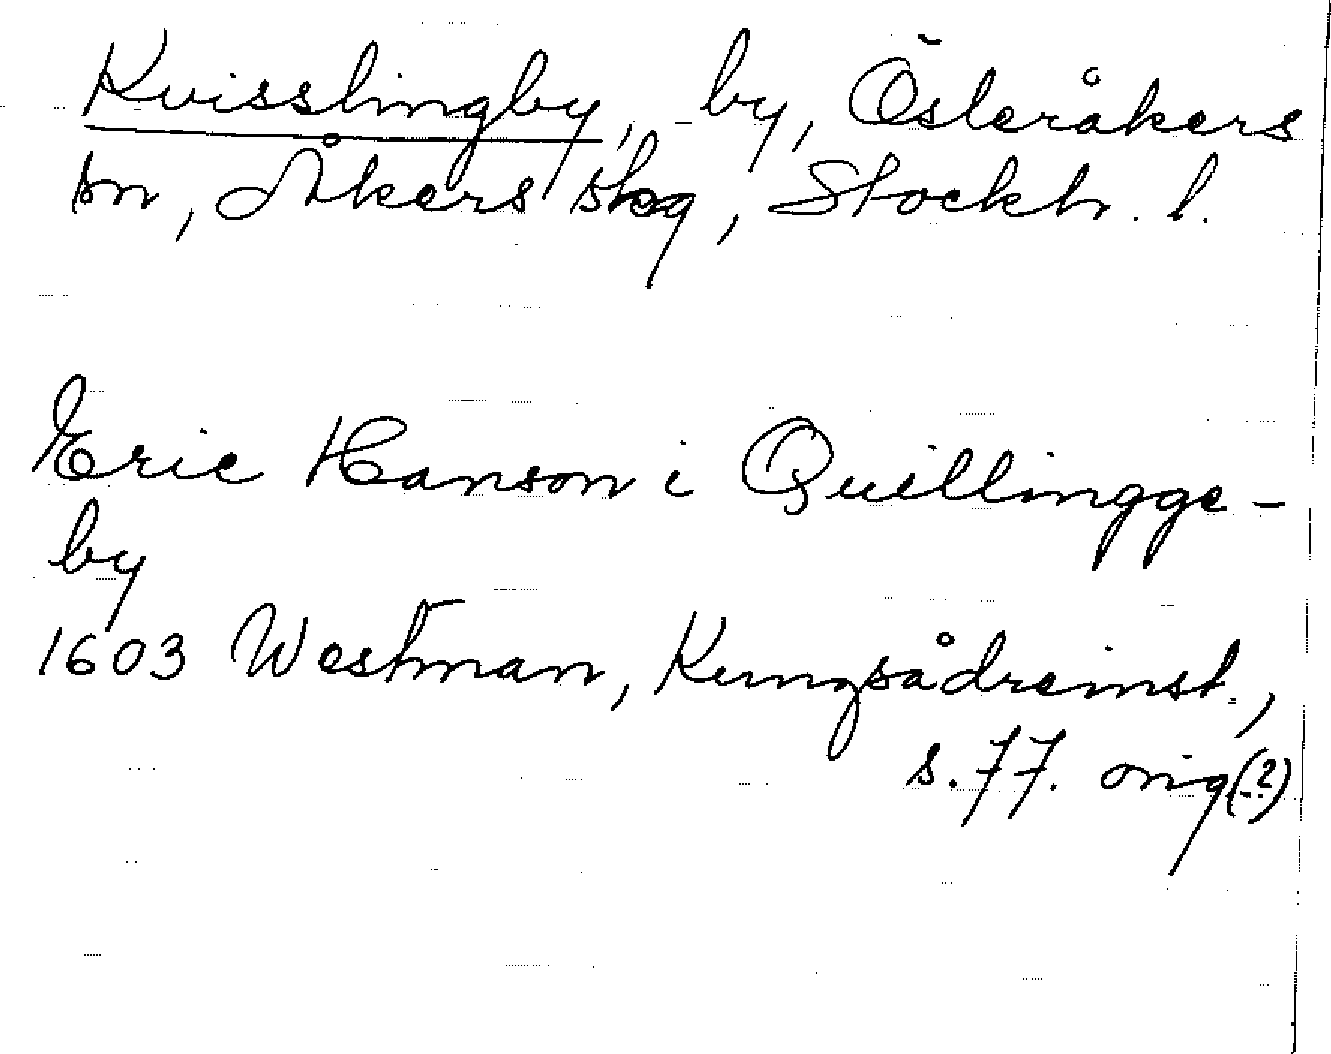 Kvisslingby, by, Österåkers
sn, Åkers skg, Stockh. l.
Eric Hanson i Quillingge-
by
1603 Westman, Kungsådreinst.,
s. 77. orig(?)